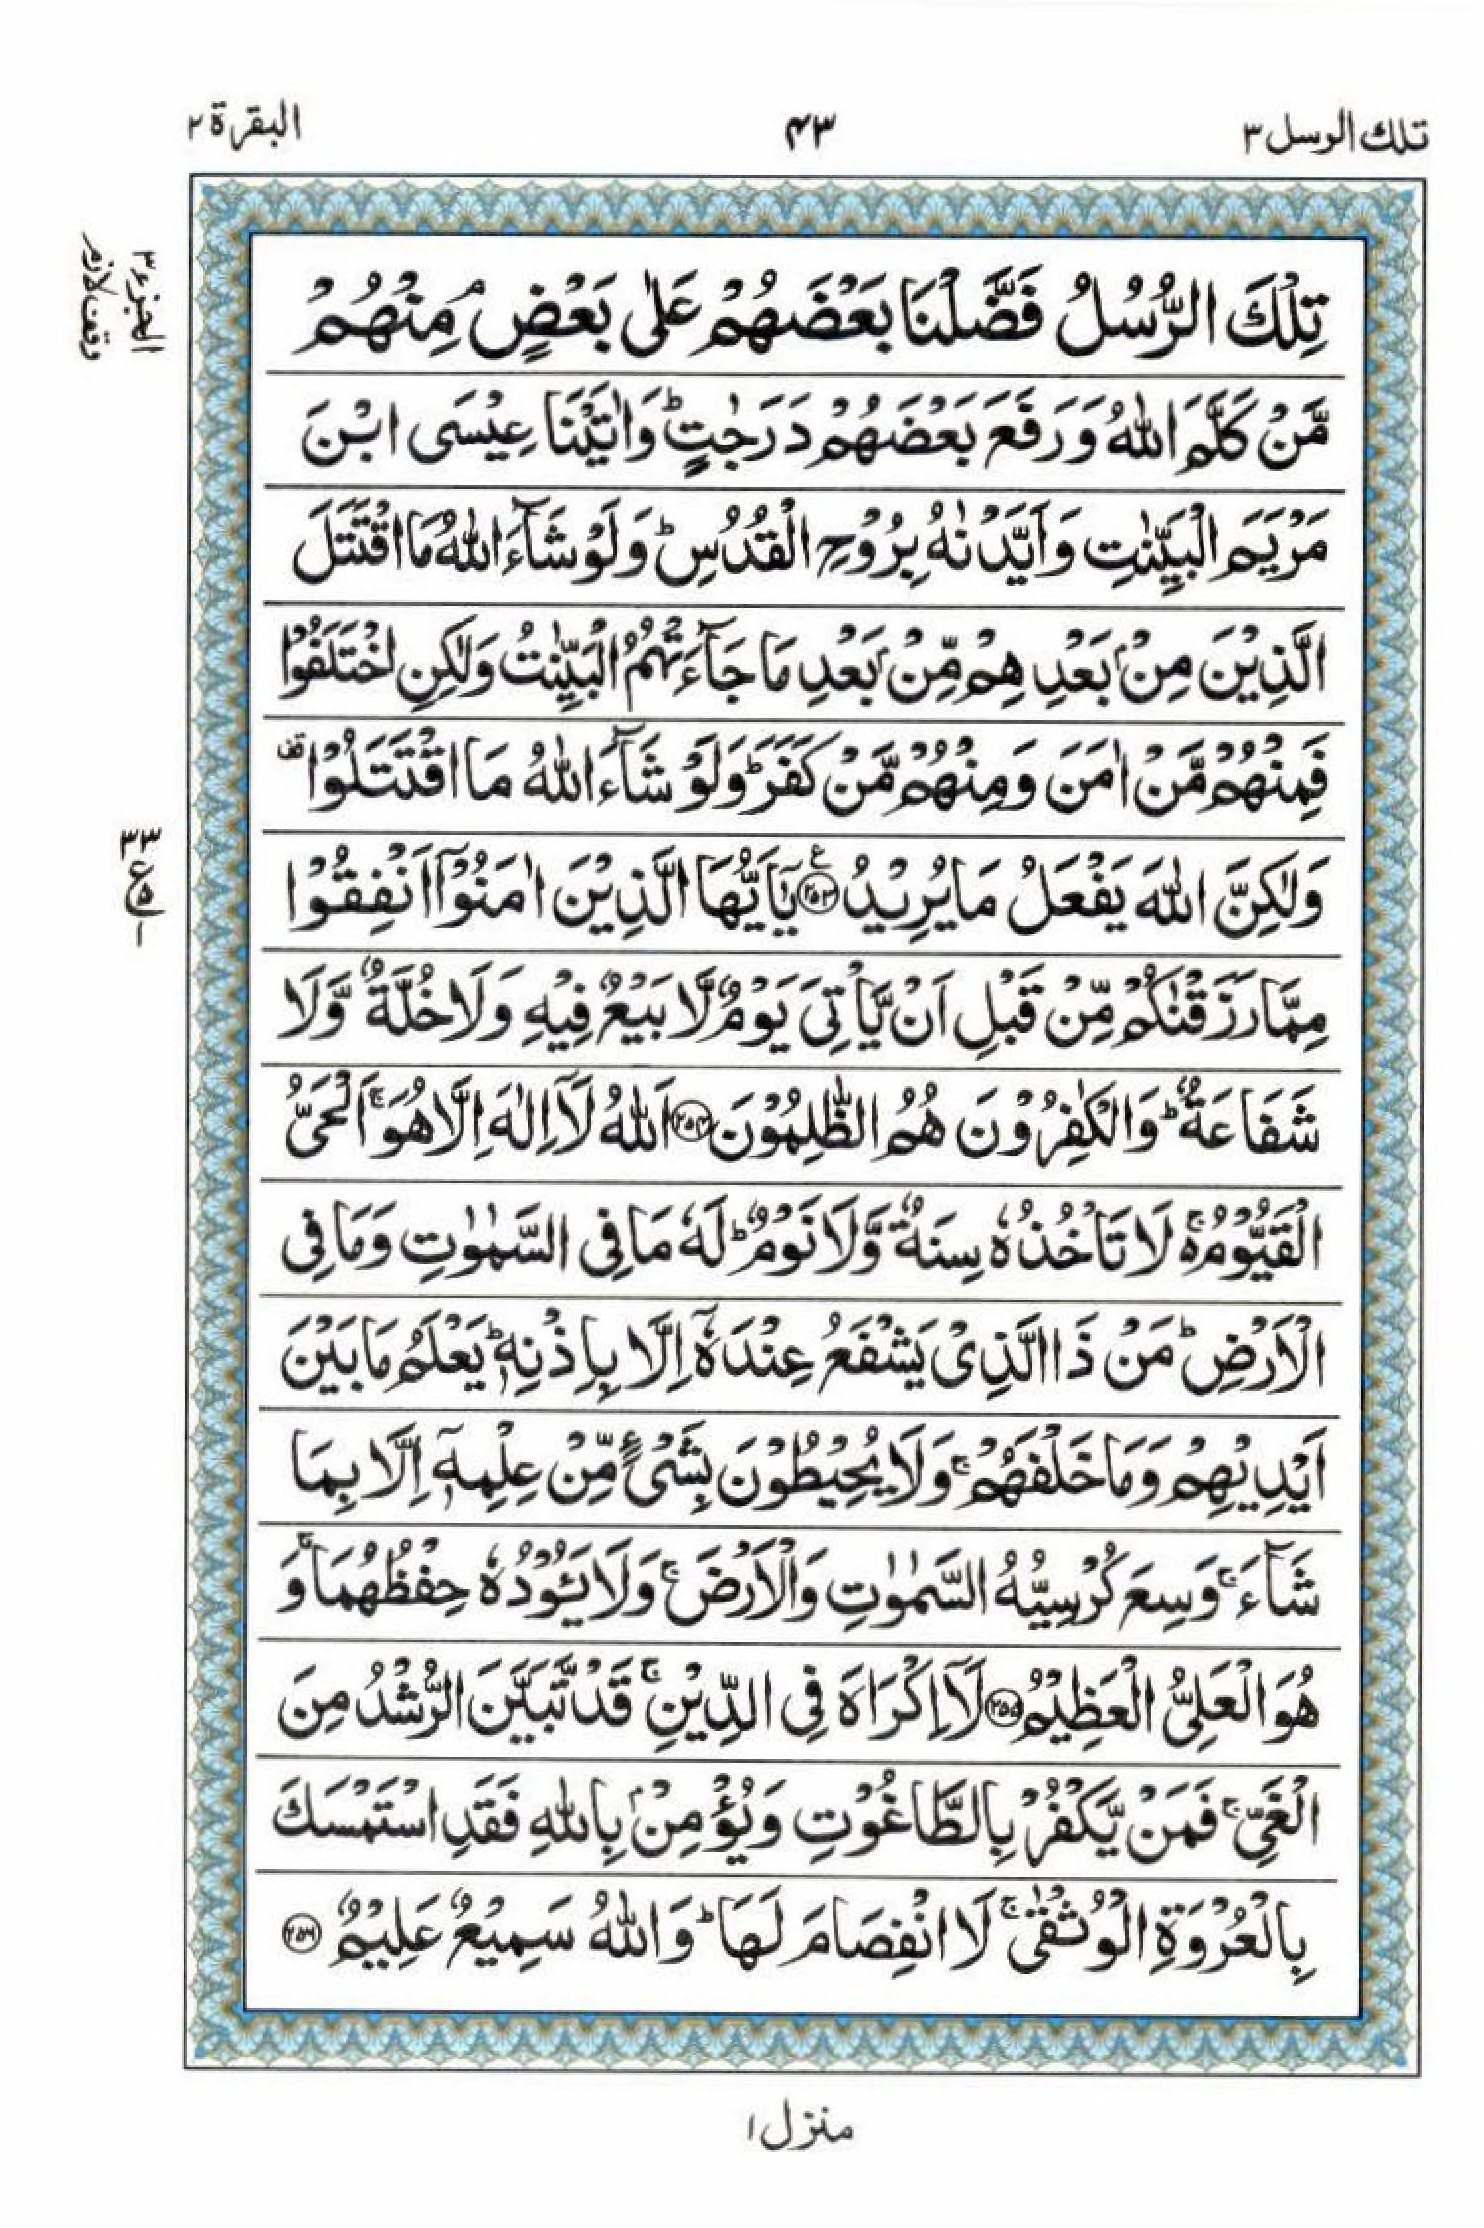 تلك الرسل ٣
٤٣
البقرة ٢
الجزء ٣
وقف لازم
تِلْكَ الرُّسُلُ فَضَّلْنَا بَعْضَهُمْ عَلٰى بَعْضٍ ۘ مِنْهُمْ
مَّنْ كَلَّمَ اللّٰهُ وَرَفَعَ بَعْضَهُمْ دَرَجٰتٍ ؕ وَاٰتَيْنَا عِيْسَى ابْنَ
مَرْيَمَ الْبَيِّنٰتِ وَاَيَّدْنٰهُ بِرُوْحِ الْقُدُسِ ؕ وَلَوْ شَآءَ اللّٰهُ مَا اقْتَتَلَ
الَّذِيْنَ مِنْۢ بَعْدِهِمْ مِّنْۢ بَعْدِ مَا جَآءَتْهُمُ الْبَيِّنٰتُ وَلٰكِنِ اخْتَلَفُوْا
فَمِنْهُمْ مَّنْ اٰمَنَ وَمِنْهُمْ مَّنْ كَفَرَ ؕ وَلَوْ شَآءَ اللّٰهُ مَا اقْتَتَلُوْا ۟قف
وَلٰكِنَّ اللّٰهَ يَفْعَلُ مَا يُرِيْدُ ﴿۲۵۳﴾ ع يٰۤاَيُّهَا الَّذِيْنَ اٰمَنُوْۤا اَنْفِقُوْا
مِمَّا رَزَقْنٰكُمْ مِّنْ قَبْلِ اَنْ يَّاْتِيَ يَوْمٌ لَّا بَيْعٌ فِيْهِ وَلَا خُلَّةٌ وَّلَا
شَفَاعَةٌ ؕ وَالْكٰفِرُوْنَ هُمُ الظّٰلِمُوْنَ ﴿۲۵۴﴾ اَللّٰهُ لَاۤ اِلٰهَ اِلَّا هُوَ ۚ اَلْحَيُّ
الْقَيُّوْمُ ۚ۬ لَا تَاْخُذُهٗ سِنَةٌ وَّلَا نَوْمٌ ؕ لَهٗ مَا فِى السَّمٰوٰتِ وَمَا فِى
الْاَرْضِ ؕ مَنْ ذَا الَّذِىْ يَشْفَعُ عِنْدَهٗۤ اِلَّا بِاِذْنِهٖ ؕ يَعْلَمُ مَا بَيْنَ
اَيْدِيْهِمْ وَمَا خَلْفَهُمْ ۚ وَلَا يُحِيْطُوْنَ بِشَىْءٍ مِّنْ عِلْمِهٖۤ اِلَّا بِمَا
شَآءَ ۚ وَسِعَ كُرْسِيُّهُ السَّمٰوٰتِ وَالْاَرْضَ ۚ وَلَا يَـُٔوْدُهٗ حِفْظُهُمَا ۚ وَ
هُوَ الْعَلِىُّ الْعَظِيْمُ ﴿۲۵۵﴾ لَاۤ اِكْرَاهَ فِى الدِّيْنِ ۚ قَدْ تَّبَيَّنَ الرُّشْدُ مِنَ
الْغَيِّ ۚ فَمَنْ يَّكْفُرْ بِالطَّاغُوْتِ وَيُؤْمِنْۢ بِاللّٰهِ فَقَدِ اسْتَمْسَكَ
بِالْعُرْوَةِ الْوُثْقٰى ۚ لَا انْفِصَامَ لَهَا ؕ وَاللّٰهُ سَمِيْعٌ عَلِيْمٌ ﴿۲۵۶﴾
۳۳
ع
منزل ١